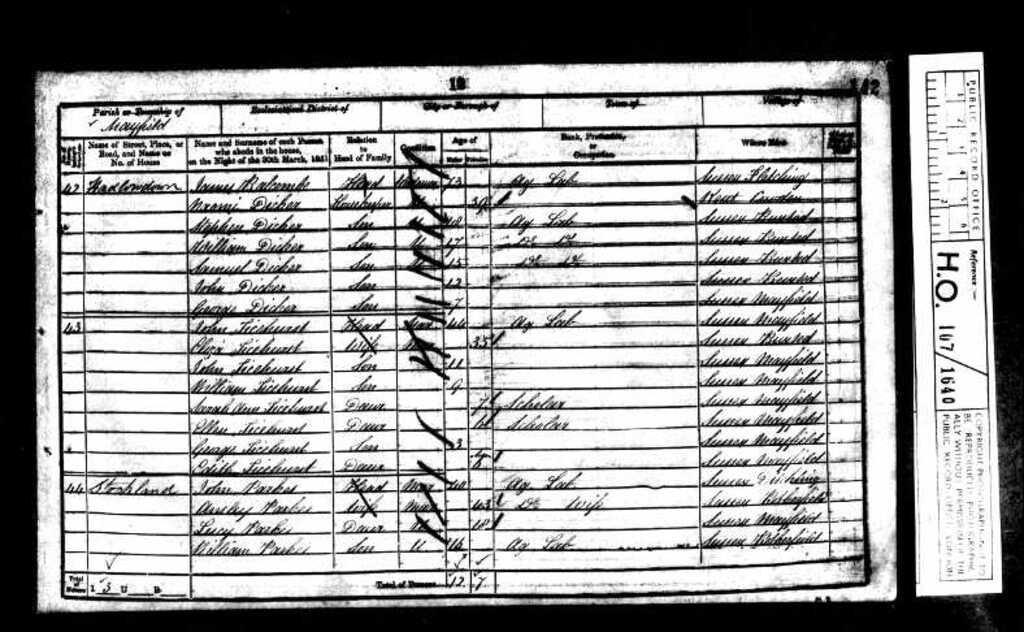 18
142
Parish or Township of Ecclesiastical District of City or Borough of Town of Village of
Mayfield
Name of Street, Place, or Road, and Name or No. of House
Name and Surname of each Person who abode in the house, on the Night of the 30th March, 1851
Relation to Head of Family
Condition
Age of
Males Females
Rank, Profession, or Occupation
Where Born
42 Hadlowdown James Head 73 Ag Lab Sussex Fletching
Naomi Dicker Housekeeper 39 Kent
Stephen Dicker Son U 18 Ag Lab Sussex Buxted
William Dicker Son U 17 Do Do Sussex Buxted
Samuel Dicker Son 15 Do Do Sussex Buxted
John Dicker Son 12 Sussex Buxted
George Dicker Son 7 Sussex Mayfield
43 John Ticehurst Head Mar 44 Ag Lab Sussex Mayfield
Eliza Ticehurst Wife 35 Sussex Buxted
John Ticehurst Son 11 Sussex Mayfield
William Ticehurst Son 9 Sussex Mayfield
Sarah Ann Ticehurst Daur 7 Scholar Sussex Mayfield
Ellen Ticehurst Daur Scholar Sussex Mayfield
George Ticehurst Son 3 Sussex Mayfield
Edith Ticehurst Daur Sussex Mayfield
44 Stockland John Parkes Head Mar Ag Lab Sussex
Parkes Wife Mar 43 Do Wife Sussex Rotherfield
Lucy Parkes Daur 18 Sussex Mayfield
William Parkes Son U Ag Lab Sussex Rotherfield
Total of Houses I 3 U B Total of Persons 12 7
PUBLIC RECORD OFFICE
Reference:-
H.O. 107/1640
COPYRIGHT PHOTOGRAPH - NOT TO BE REPRODUCED PHOTOGRAPHICALLY WITHOUT PERMISSION OF THE PUBLIC RECORD OFFICE, LONDON